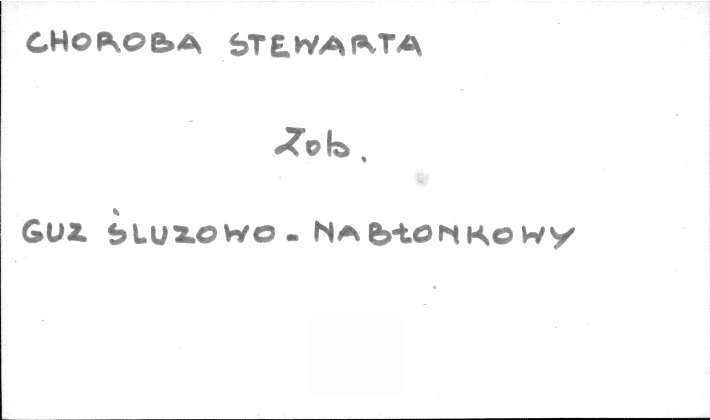 CHOROBA STEWARTA
Zob.
GUZ ŚLUZOWO-NABŁONKOWY